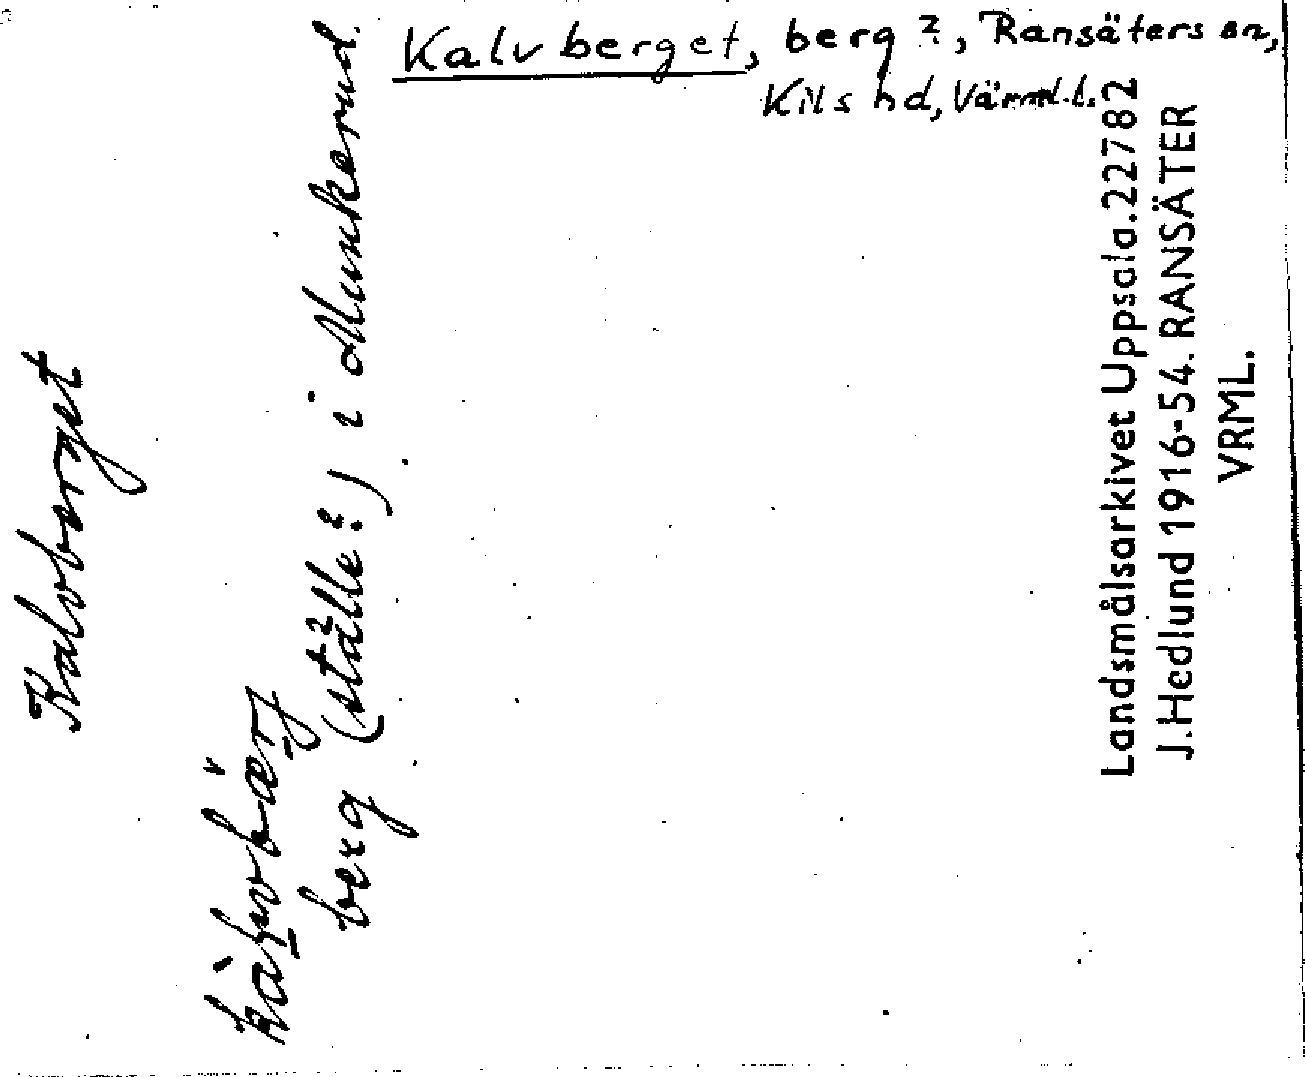 Kalvberget, berg?, Ransäters sn,
Kils hd, Värml. l.
Kalvberget
berg (ställe?) i Munkerud.
Landsmålsarkivet Uppsala. 22782
J. Hedlund 1916-54. RANSÄTER
VRML.